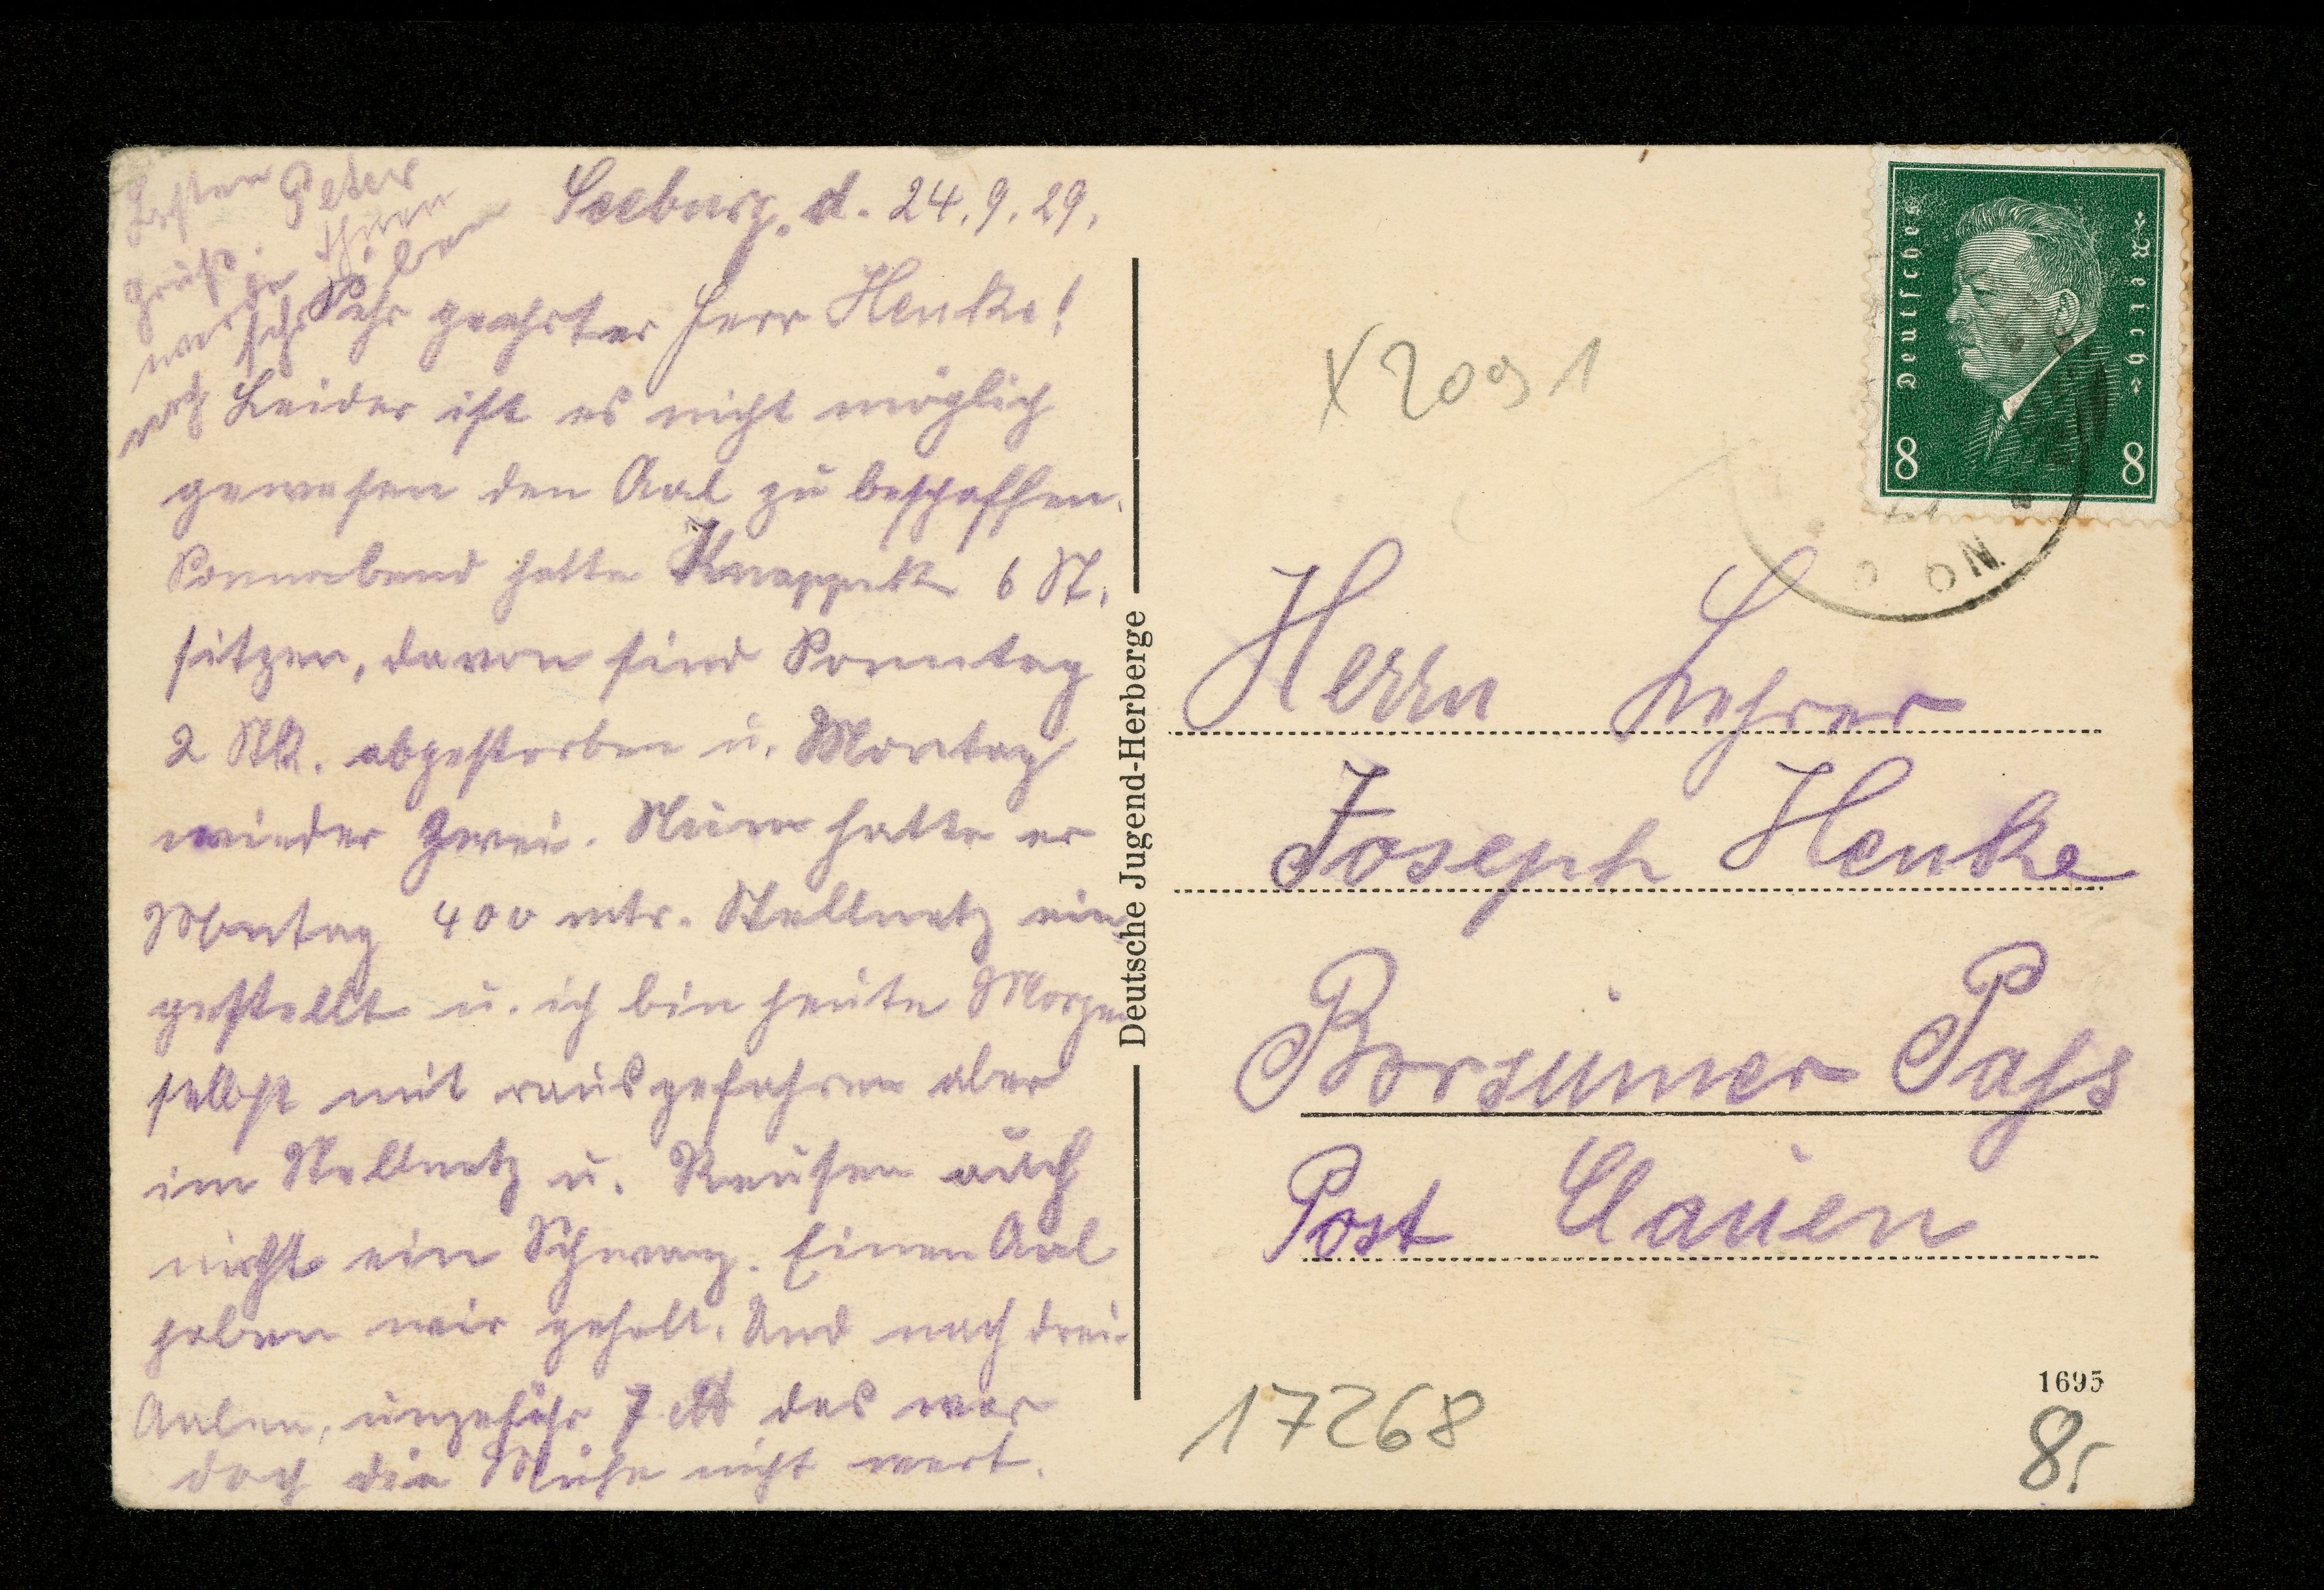 Seeburg. d. 24.9.29.
Sehr geehrter Herr Henke!
Leider ist es nicht möglich
gewesen den Aal zu beschaffen.
Sonnabend hatte 6 St.
sitzen, davon sind Sonntag
2 Stk. abgestorben u. Montag
wieder zwei. Nun hatte er
Montag 400 mtr. Stellnetz ein-
gestellt u. ich bin heute Morgen
selbst mit rausgefahren aber
im Stellnetz u. Reusen auch
nicht ein Schwanz. Einen Aal
haben wir geholt. Und nach drei
Aalen, ungefähr 7 das war
doch die Mühe nicht wert.
Besten Gruß
Peter
Deutsche Jugend-Herberge
Deutsches Reich
8 8
X2091
Herrn Lehrer
Joseph Henke
Borsumer Pass
Post Clauen
17268
1695
8,